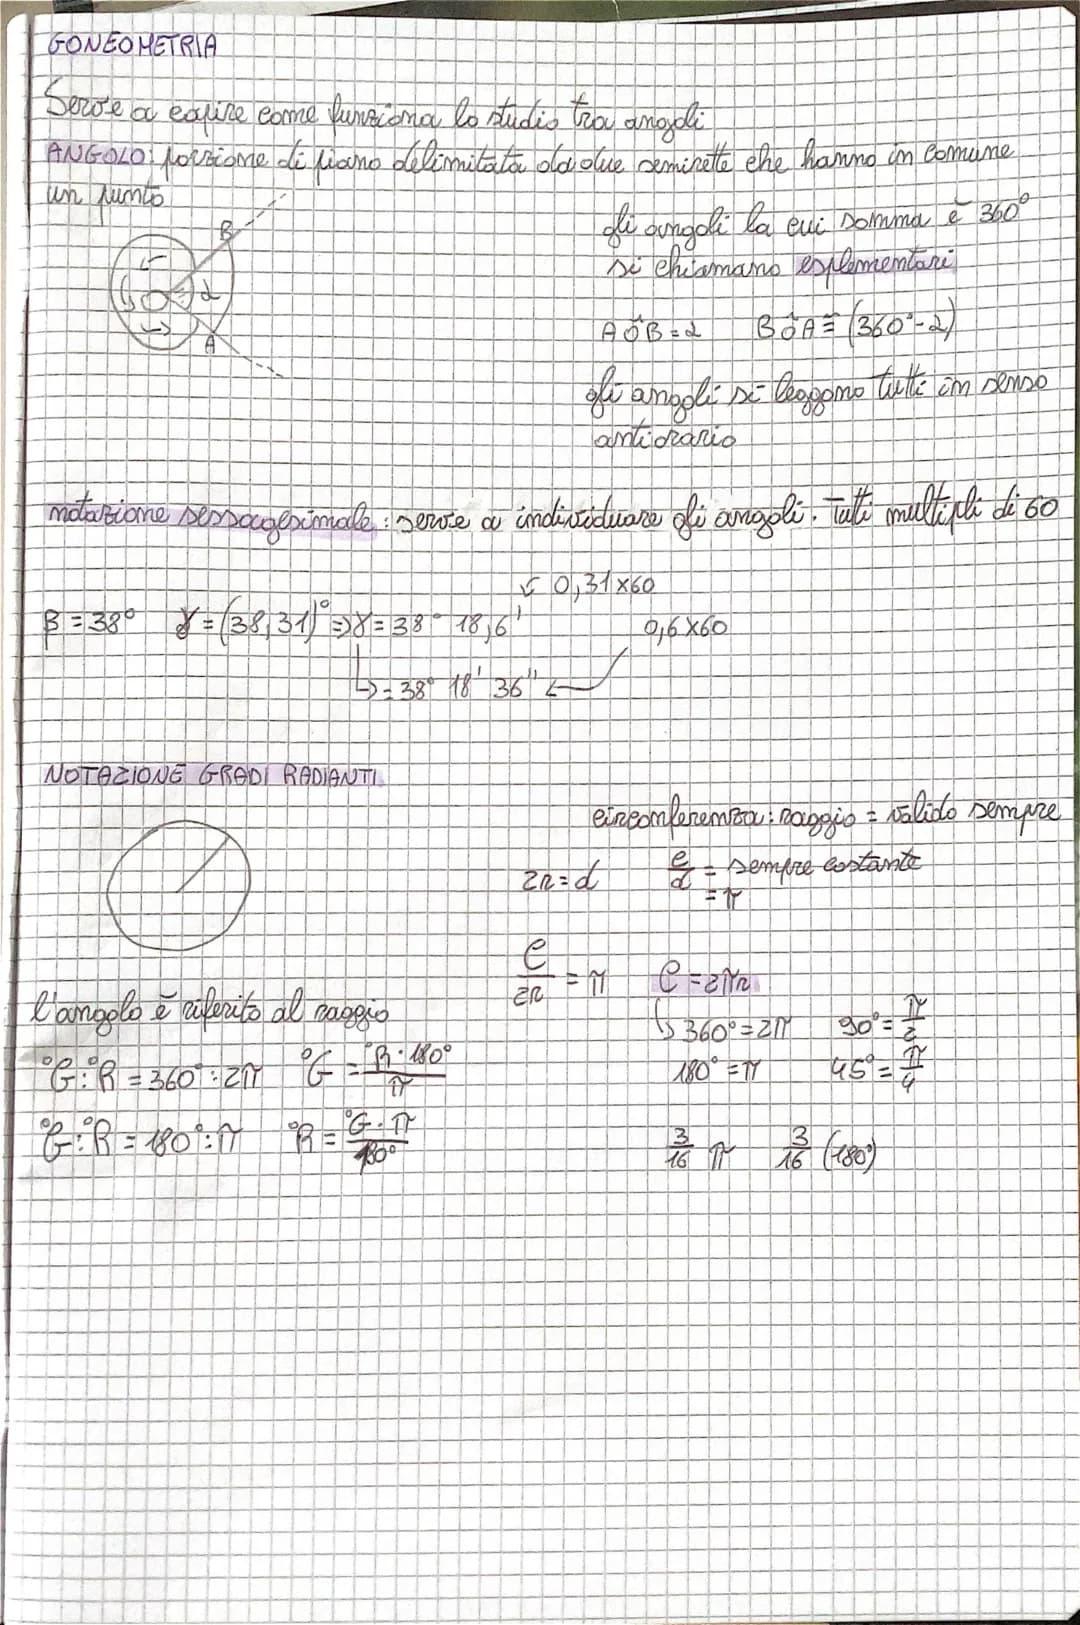 GONEOMETRIA
Serve a capire come funziona lo studio tra angoli
ANGOLO: porzione di piano delimitata da due semirette che hanno in comune
un punto
B
O
α
A
gli angoli la cui somma è 360°
si chiamano esplementari
AÔB=α BÔA=(360°-α)
gli angoli si leggono tutti in senso
antiorario
notazione sessagesimale: serve a individuare gli angoli. Tutti multipli di 60
0,31×60
β=38° γ=(38,31)°⇒γ=38° 18,6' 0,6×60
↳=38° 18' 36" ←
NOTAZIONE GRADI RADIANTI
circonferenza: raggio = valido sempre
2r=d c/d = sempre costante
=π
C/2r = π C=2πr
l'angolo è riferito al raggio
↳360°=2π 90°=π/2
°G:°R=360°:2π °G=°R·180°/π
180°=π 45°=π/4
°G:°R=180°:π °R=°G·π/180°
3/16 π 3/16 (180°)